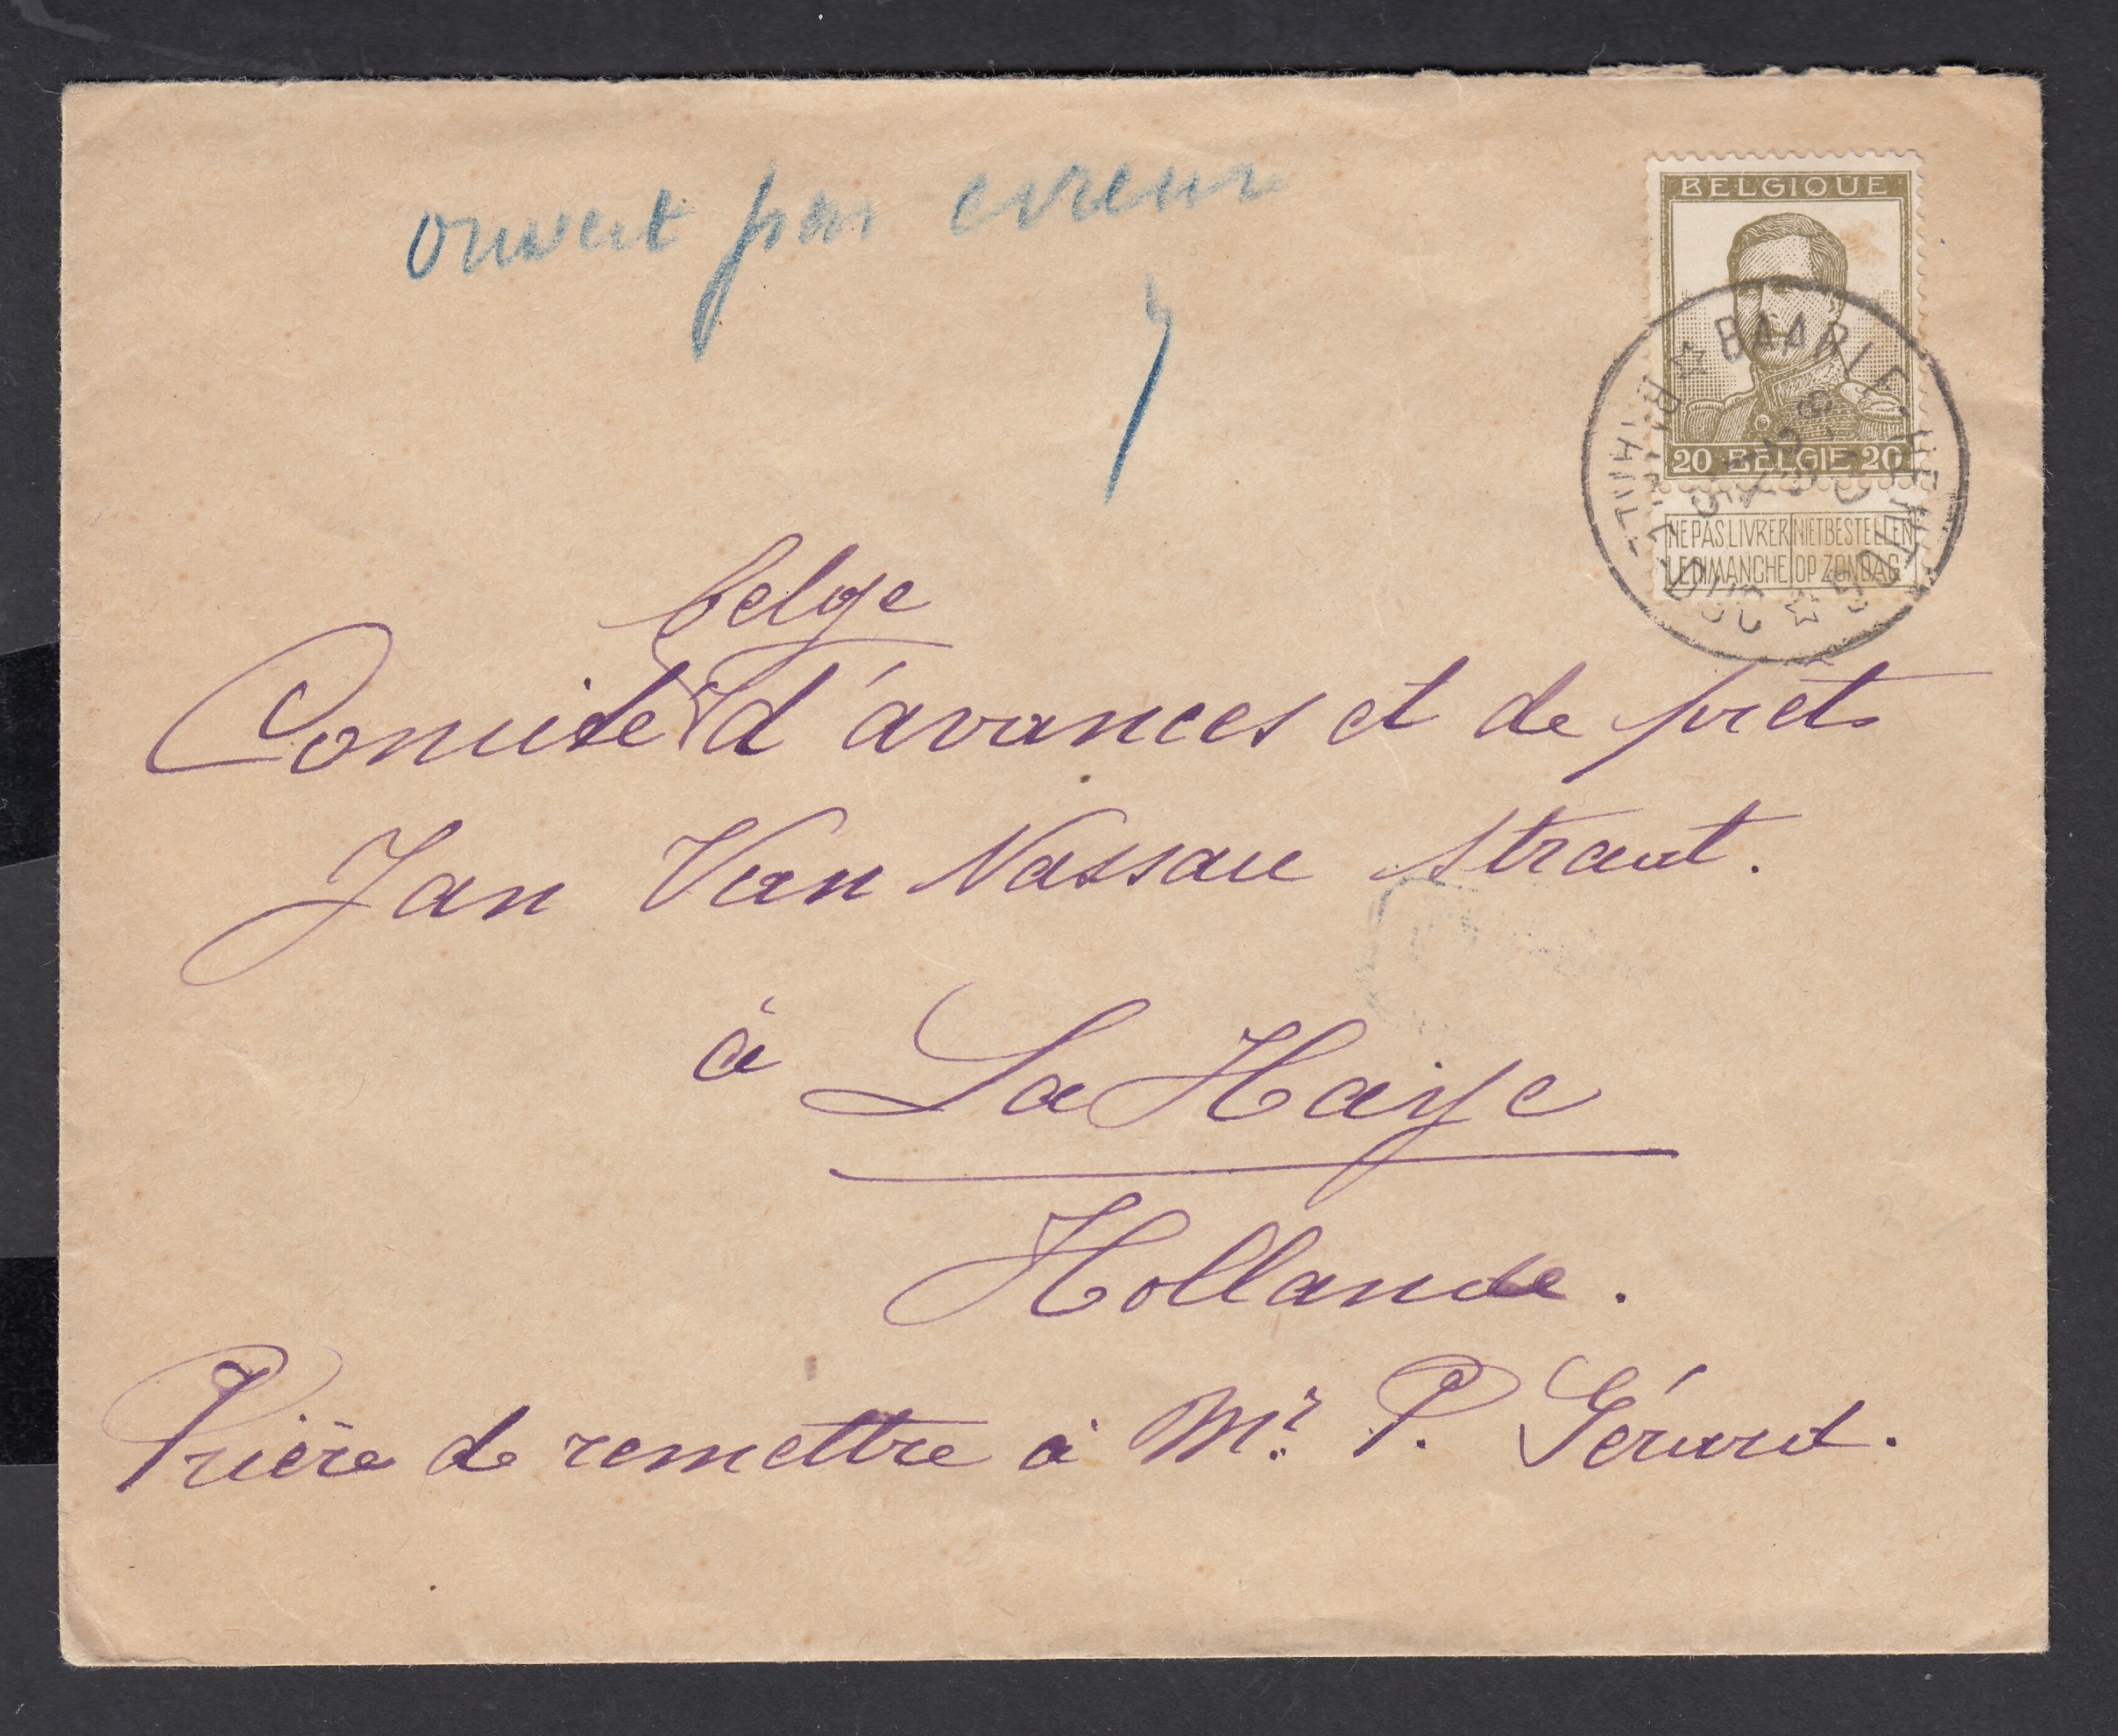 ouvert par erreur
BELGIQUE
20 BELGIE 20
NE PAS LIVRER LE DIMANCHE
NIET BESTELLEN OP ZONDAG
BAARLE-HERTOG
BAAR-LE-DUC
belge
Comité d'avances et de prêts
Jan Van Nassau straat.
à La Haye
Hollande.
Prière de remettre à Mr. P. Gérard.